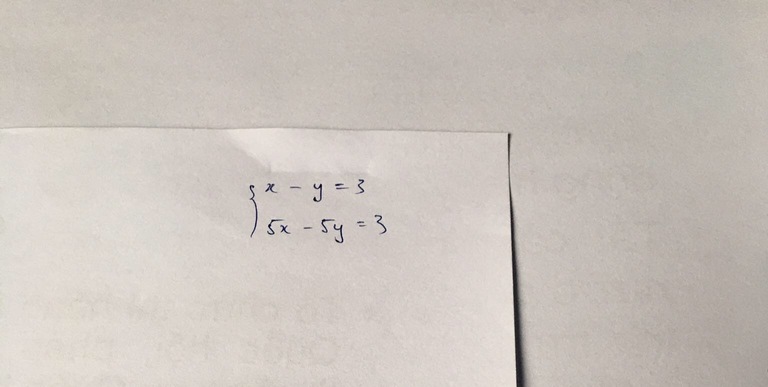 x - y = 3
5x - 5y = 3